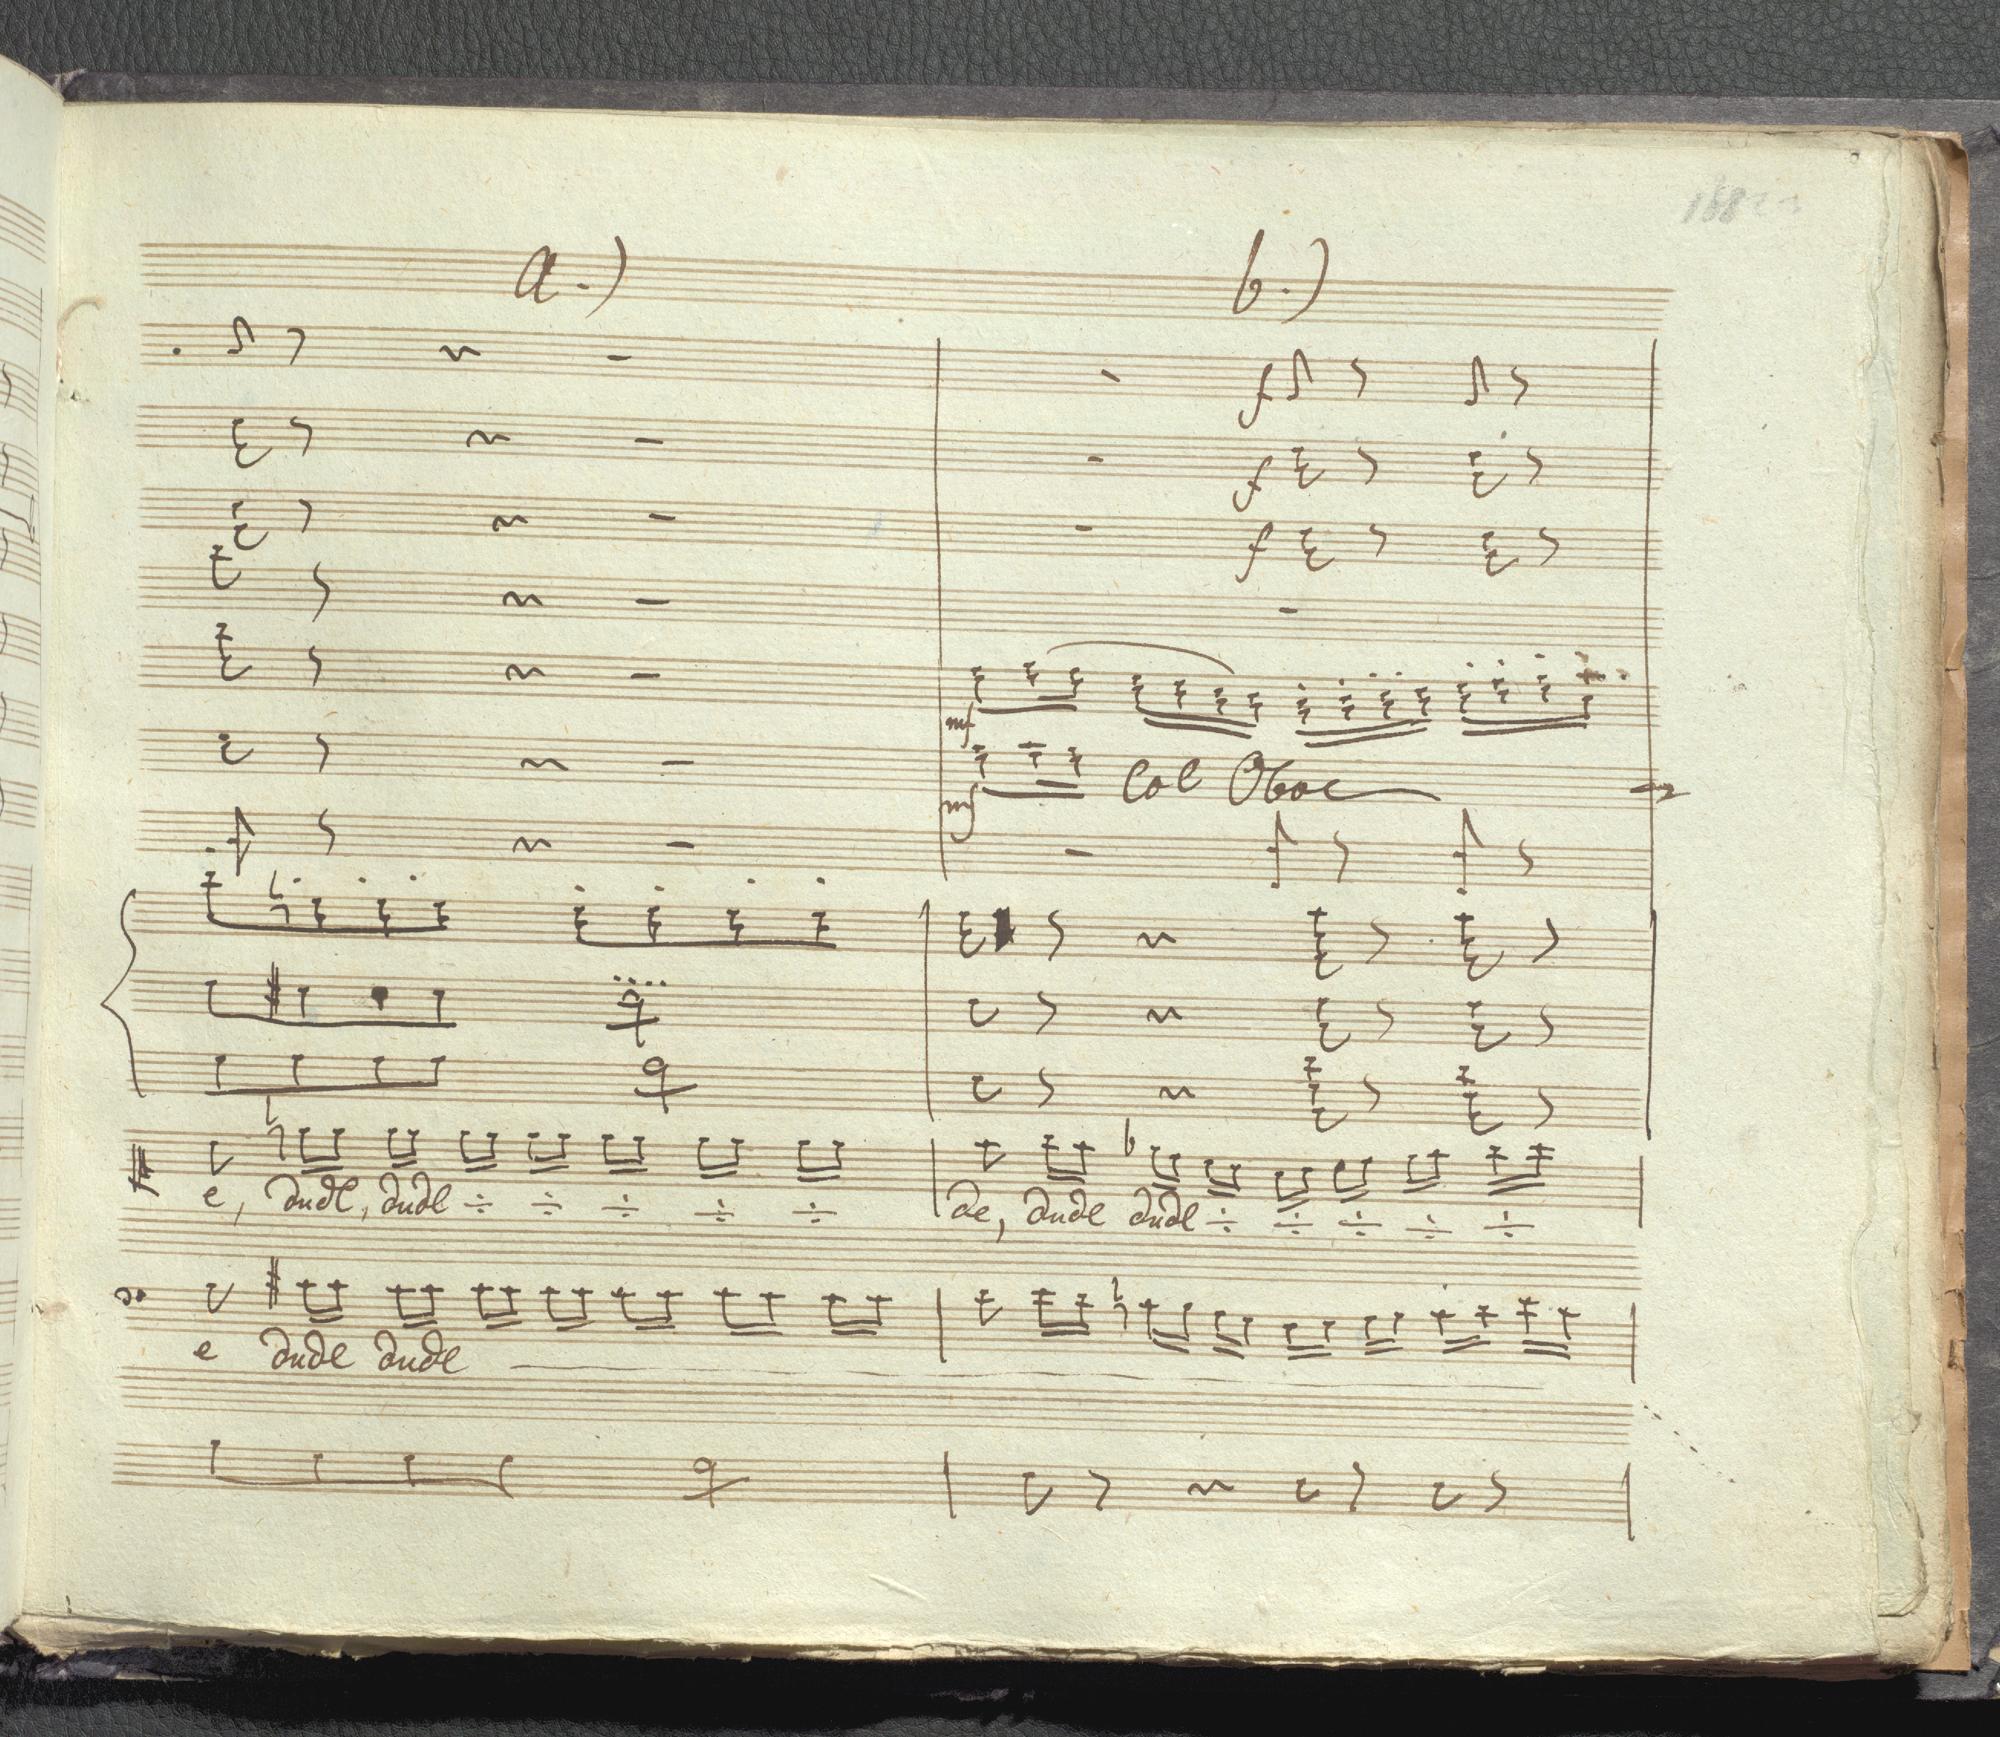 a.) b.)
f
f
f
mf
mf Col Oboe
e, dudl, dudl ÷ ÷ ÷ ÷ ÷ de, dudl dudl ÷ ÷ ÷ ÷ ÷
e dudl dudl